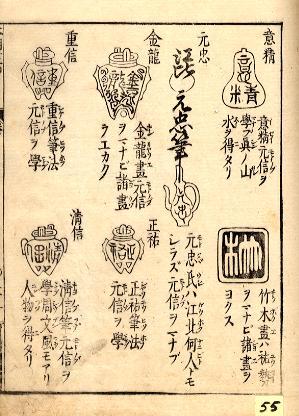 意精
意精元信ヲ
學ブ眞ノ山
水ヲ得タリ
竹木畫ハ祐勢
ヲマナビ諸畫ヲ
ヨクス
元忠
元忠筆
元忠氏ハ江北何人トモ
シラズ元信ヲマナブ
金龍
金龍畫元信
ヲマナビ諸畫
ヲエカク
正祐
正祐筆法
元信ヲ學
重信
重信筆法
元信ヲ學
清信
清信筆元信ヲ
學周文風モアリ
人物ヲ得タリ
55